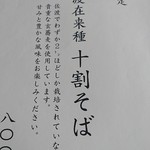 定
渡在来種 十割そば
佐渡でわずか2%ほどしか栽培されていな
貴重な玄蕎麦を使用しています。
甘みと豊かな風味をお楽しみください。
八〇〇